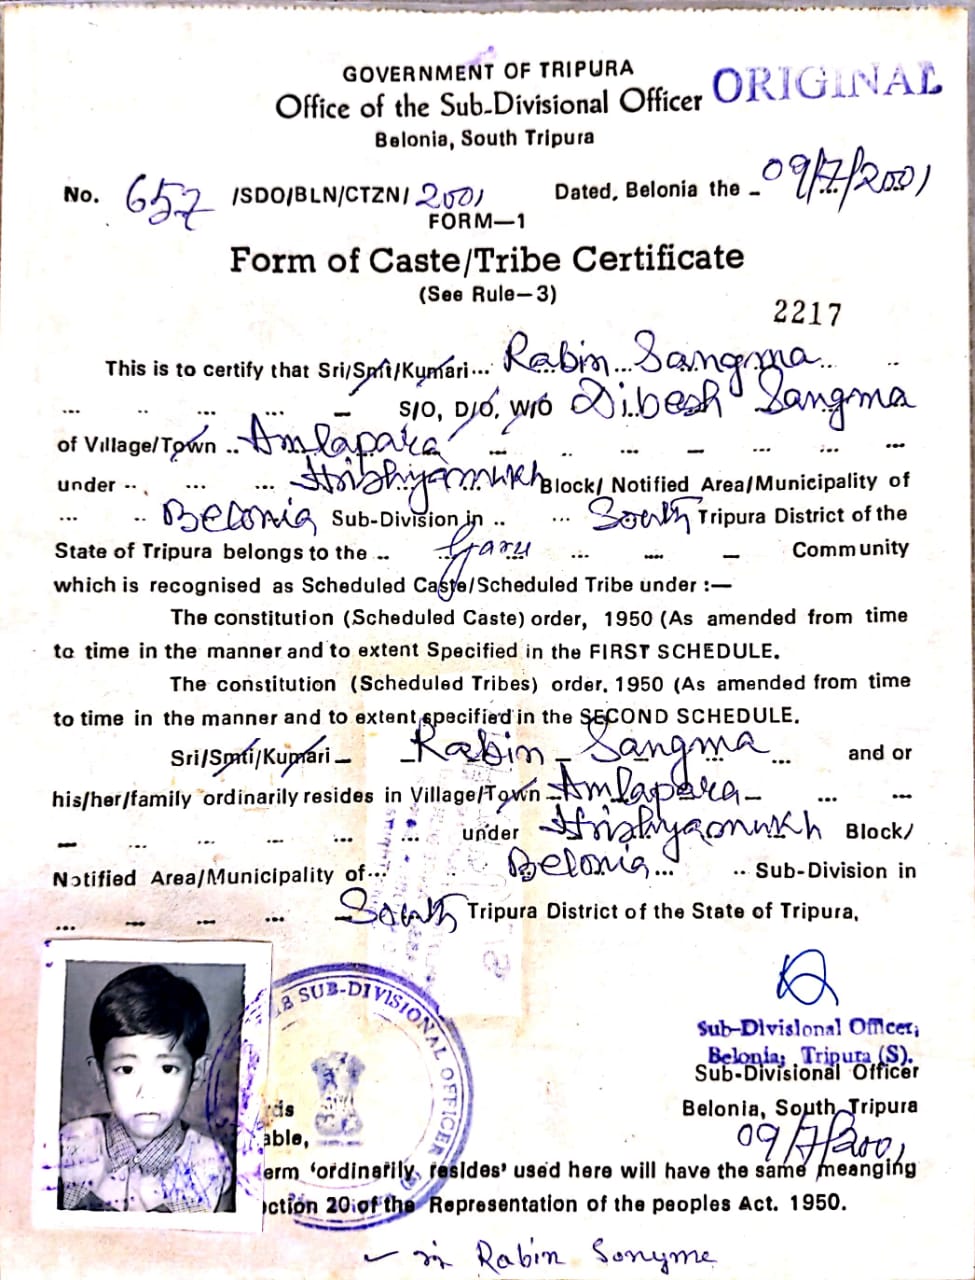 GOVERNMENT OF TRIPURA
ORIGINAL
Office of the Sub-Divisional Officer
Belonia, South Tripura
No. 657 /SDO/BLN/CTZN/ 2001 Dated, Belonia the - 09/7/2001
FORM—1
Form of Caste/Tribe Certificate
(See Rule—3)
2217
This is to certify that Sri/Smt/Kumari... Rabin Sangma
S/O, D/O, W/O Dibesh Sangma
of Village/Town .. Amlapara
under .. Hrishyamukh Block/ Notified Area/Municipality of
Belonia Sub-Division in .. South Tripura District of the
State of Tripura belongs to the .. Garu Community
which is recognised as Scheduled Caste/Scheduled Tribe under :—
The constitution (Scheduled Caste) order, 1950 (As amended from time
to time in the manner and to extent Specified in the FIRST SCHEDULE.
The constitution (Scheduled Tribes) order. 1950 (As amended from time
to time in the manner and to extent specified in the SECOND SCHEDULE.
Sri/Smti/Kumari — Rabin Sangma ... and or
his/her/family ordinarily resides in Village/Town Amlapara
under Hrishyamukh Block/
Notified Area/Municipality of... Belonia... Sub-Division in
South Tripura District of the State of Tripura,
SUB-DIVISIONAL OFFICER
Sub-Divisional Officer,
Belonia, Tripura (S).
Sub-Divisional Officer
Belonia, South Tripura
09/7/2001
rds
able,
erm 'ordinarily resides' used here will have the same meanging
ction 20 of the Representation of the peoples Act. 1950.
Rabin Sonyme